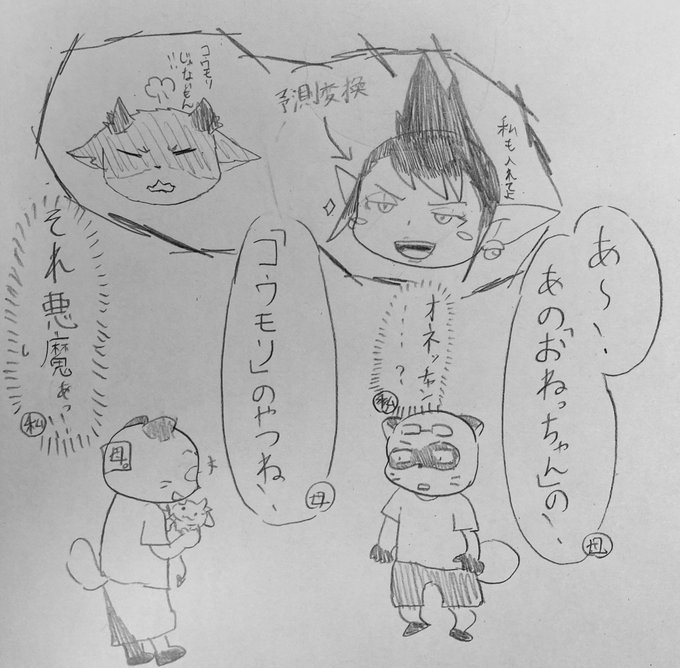 あ〜、、
あの「おねっちゃん」の、、
母
オネッチャン
……?
私
予測変換
私も入れてよ
「コウモリ」のやつね、、
母
コウモリ
じゃないもん
それ悪魔ぁっ…
私
母。